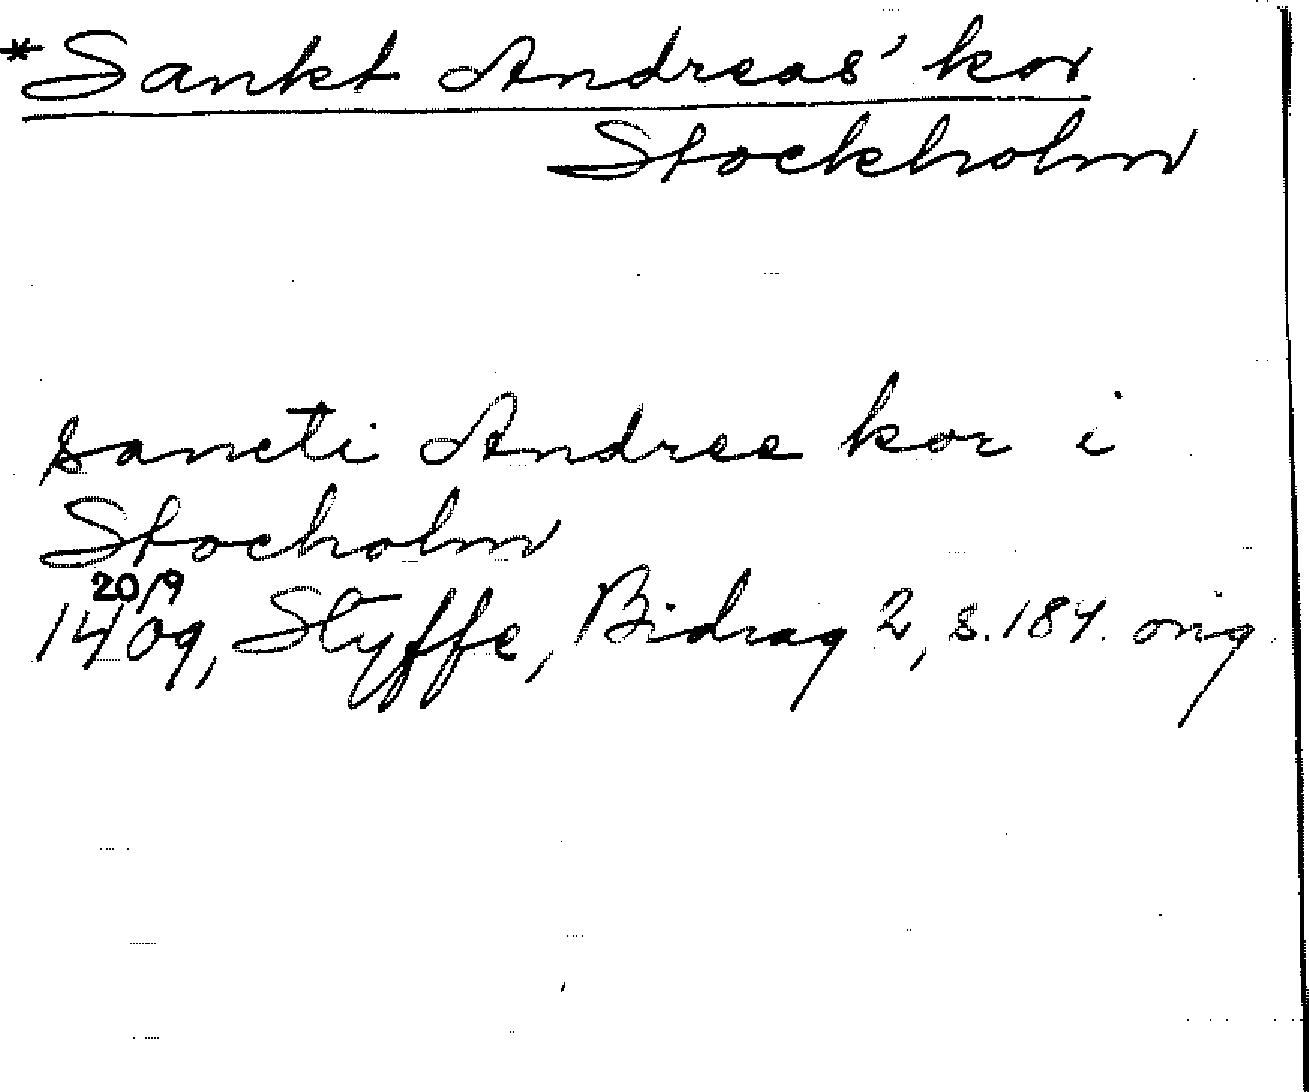 *Sankt Andreas' kor
Stockholm
sancti Andree kor i
Stocholm
20/9
1409, Styffe, Bidrag 2, s. 184. orig.